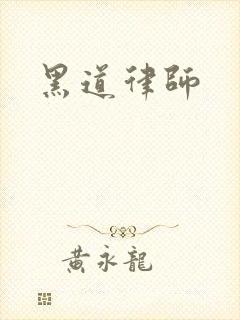 黑道律師
黃永龍